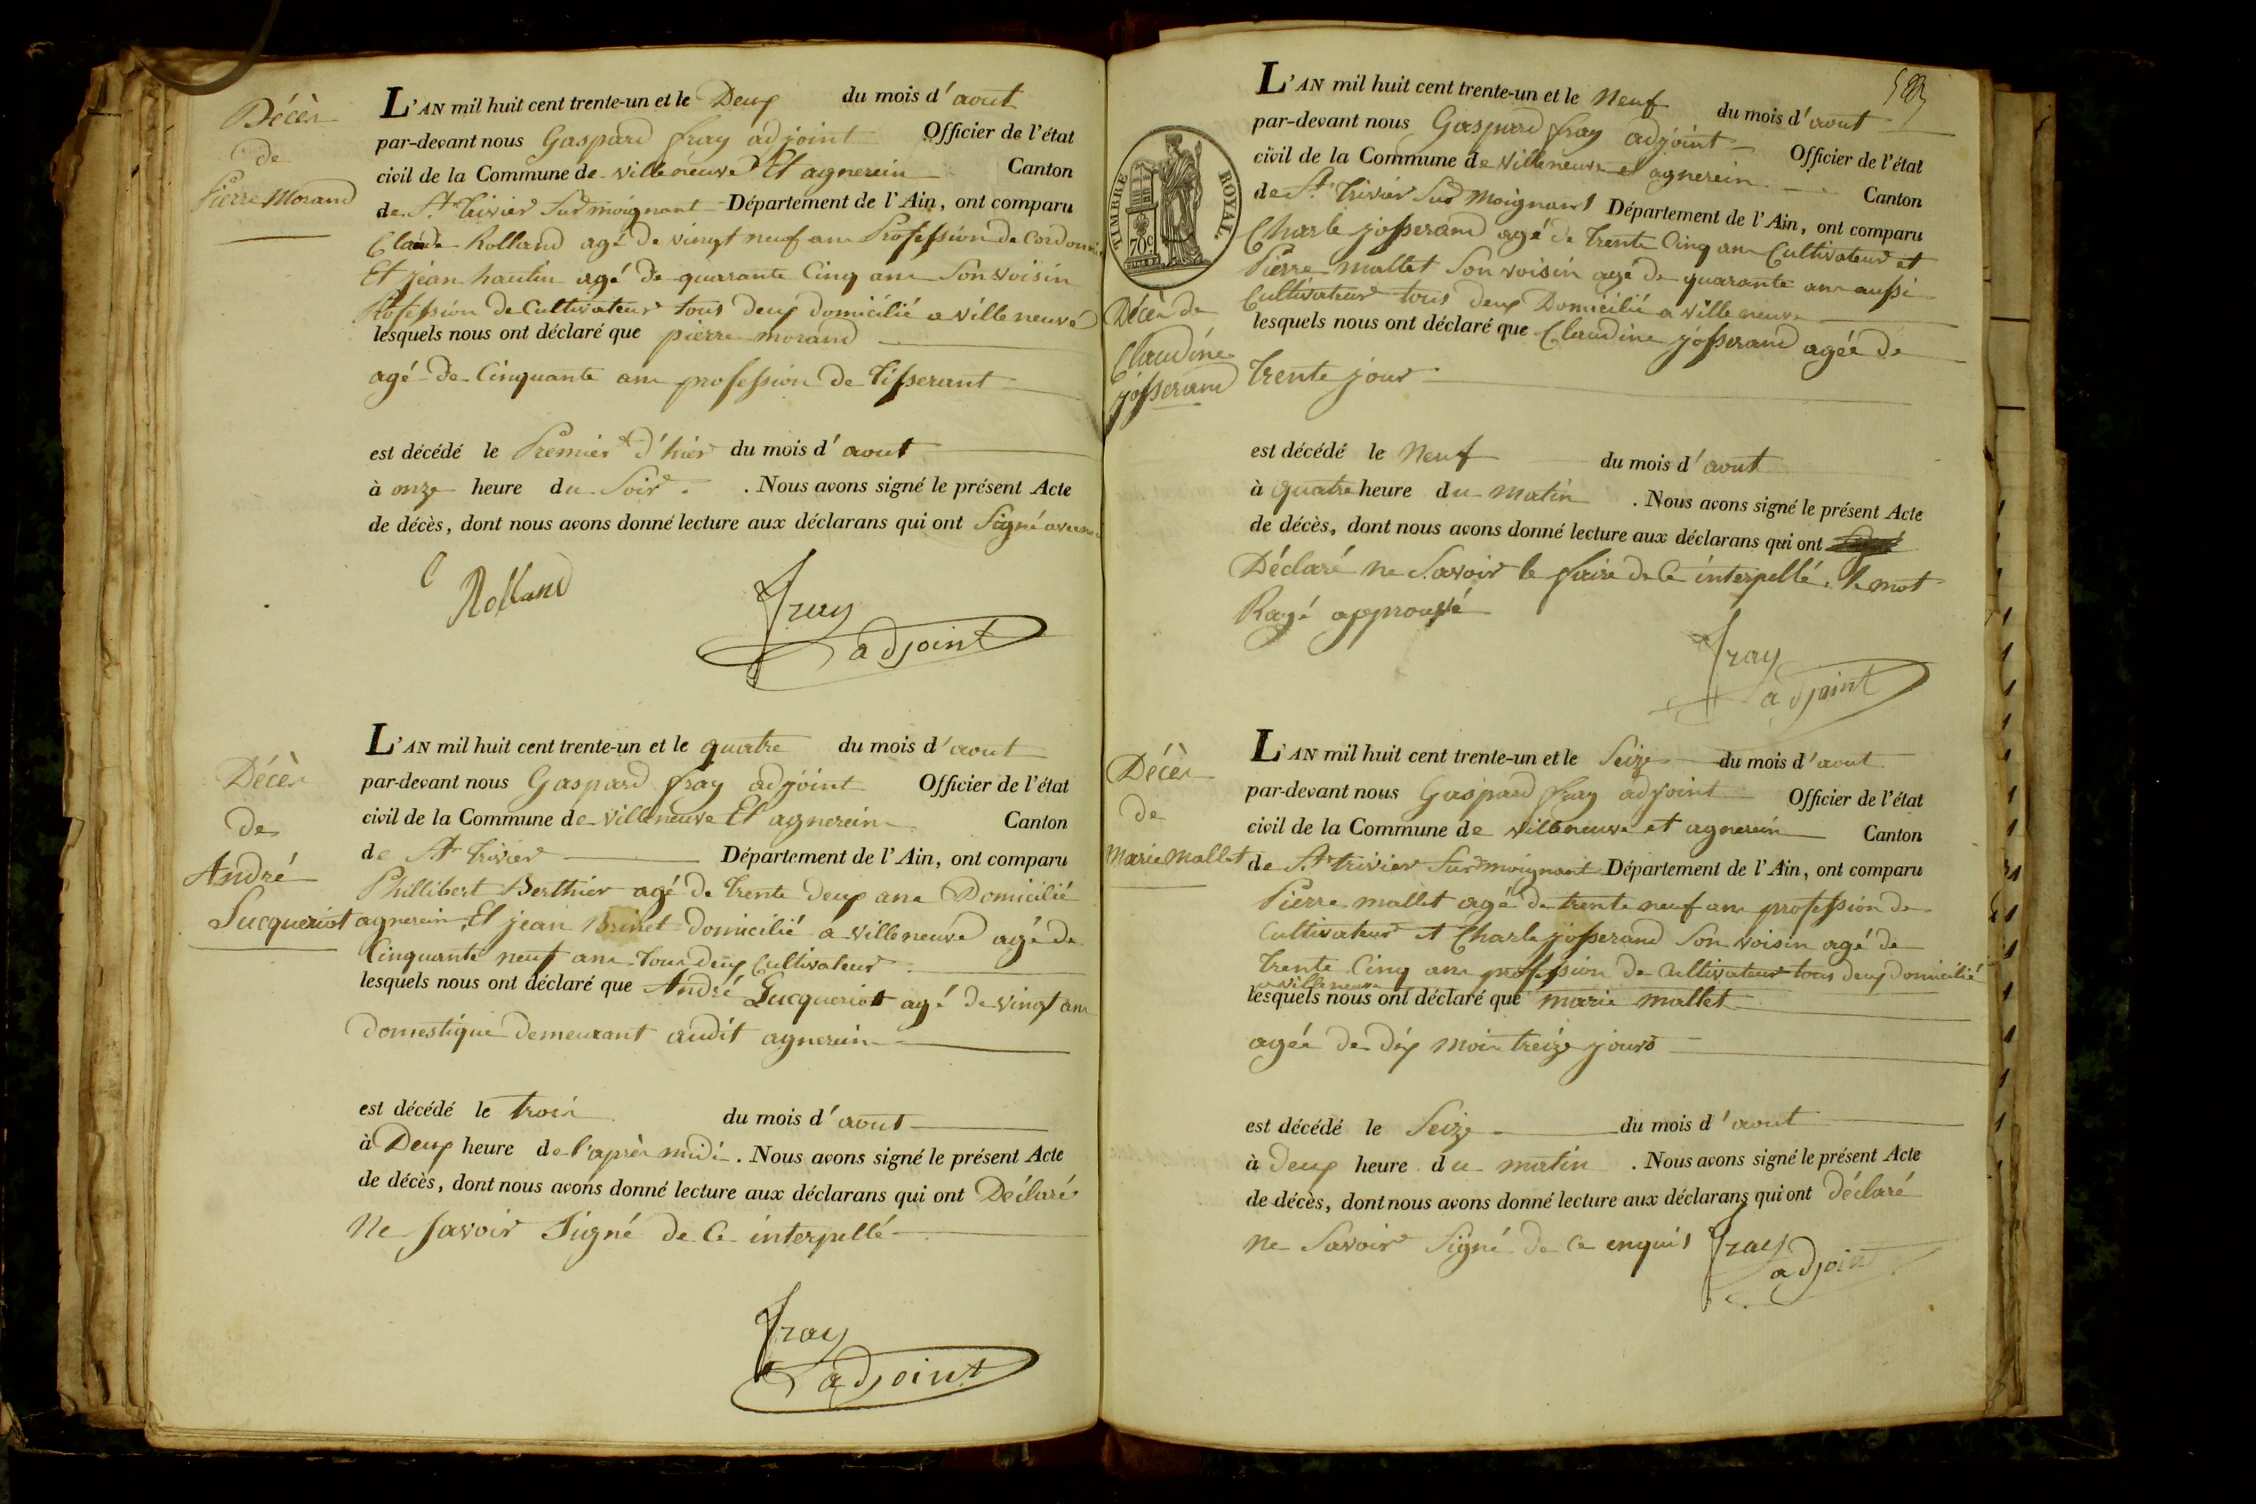 Décès
de
Pierre Morand
L'AN mil huit cent trente-un et le Deux du mois d'aout
par-devant nous Gaspard fray adjoint Officier de l'état
civil de la Commune de villeneuve Et agnerein Canton
de St trivier Sur moignant Département de l'Ain, ont comparu
Claude Rolland agé de vingt neuf ans Profession de Cordonnier
Et jean hautin agé de quarante Cinq ans Son voisin
Profession de Cultivateur tous deux domicilié a villeneuve
lesquels nous ont déclaré que pierre morand
agé de Cinquante ans profession de Tisserant
est décédé le Premier d'hier du mois d'aout
à onze heure du Soir . Nous avons signé le présent Acte
de décès, dont nous avons donné lecture aux déclarans qui ont Signé avec
C Rolland
fray
adjoint
Décès
de
André
Lucqueriot
L'AN mil huit cent trente-un et le quatre du mois d'aout
par-devant nous Gaspard fray adjoint Officier de l'état
civil de la Commune de villeneuve Et agnerein Canton
de St trivier Département de l'Ain, ont comparu
Phillibert Berthier agé de trente deux ans Domicilié
agnerein Et jean domicilié a villeneuve agé de
Cinquante neuf ans tous deux Cultivateur
lesquels nous ont déclaré que André Lucqueriot agé de vingt ans
domestique demeurant audit agnerein
est décédé le trois du mois d'aout
à Deux heure de l'après midi . Nous avons signé le présent Acte
de décès, dont nous avons donné lecture aux déclarans qui ont Déclaré
Ne Savoir Signé de Ce interpellé
fray
adjoint
TIMBRE ROYAL
70c.
Décès de
Claudine
josserand
L'AN mil huit cent trente-un et le Neuf du mois d'aout
par-devant nous Gaspard fray adjoint Officier de l'état
civil de la Commune de villeneuve et agnerein Canton
de St trivier Sur Moignant Département de l'Ain, ont comparu
Charle josserand agé de trente Cinq ans Cultivateur et
Pierre mallet Son voisin agé de quarante ans aussi
Cultivateur tous deux Domicilié a villeneuve
lesquels nous ont déclaré que Claudine josserand agée de
trente jour
est décédé le Neuf du mois d'aout
à quatre heure du matin . Nous avons signé le présent Acte
de décès, dont nous avons donné lecture aux déclarans qui ont
Déclaré ne Savoir le faire de Ce interpellé. le mot
Rayé approuvé
fray
adjoint
Décès
de
Marie Mallet
L'AN mil huit cent trente-un et le Seize du mois d'aout
par-devant nous Gaspard fray adjoint Officier de l'état
civil de la Commune de villeneuve et agnerein Canton
de St trivier Sur moignant Département de l'Ain, ont comparu
Pierre mallet agé de trente neuf ans profession de
Cultivateur et Charle josserand Son voisin agé de
trente Cinq ans profession de Cultivateur tous deux domicilié
a villeneuve
lesquels nous ont déclaré que marie mallet
agée de dix mois treize jours
est décédé le Seize du mois d'aout
à deux heure du matin . Nous avons signé le présent Acte
de décès, dont nous avons donné lecture aux déclarans qui ont déclaré
ne Savoir Signé de Ce enquis
fray
adjoint